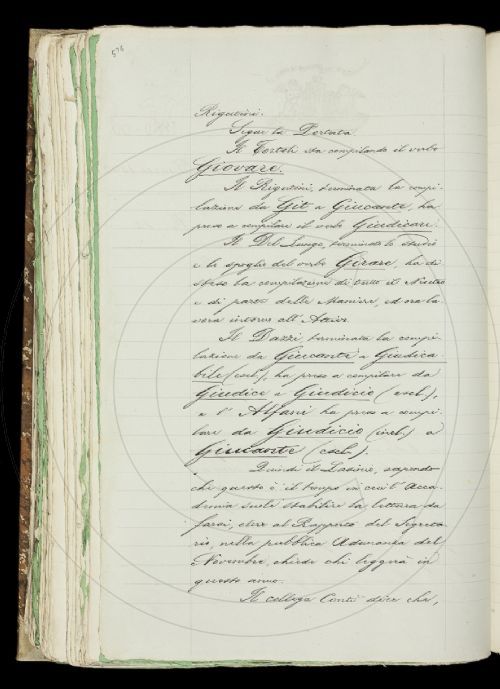 576
Rigutini.
Segue la Deputata.
Il Tortoli sta compilando il verbo
Giovare.
Il Rigutini, terminata la compi-
lazione da Git a Giucante, ha
preso a compilare il verbo Giudicare.
Il Del Lungo, terminato lo studio
e lo spoglio del verbo Girare, ha di-
steso la compilazione di tutto il Neutro
e di parte delle Maniere, ed ora la-
vora intorno all' Attivo.
Il Dazzi, terminata la compi-
lazione da Giucante a Giudica-
bile (escl.), ha preso a compilare da
Giudice a Giudicio (escl.),
e l' Alfani ha preso a compi-
lare da Giudicio (incl.) a
Giucante (escl.).
Quindi il Lasinio, sapendo
che questo è il tempo in cui l' Acca-
demia suole stabilire la lettura da
farsi, oltre al Rapporto del Segreta-
rio, nella pubblica Adunanza del
Novembre, chiede chi leggerà in
questo anno.
Il collega Conti dice che,